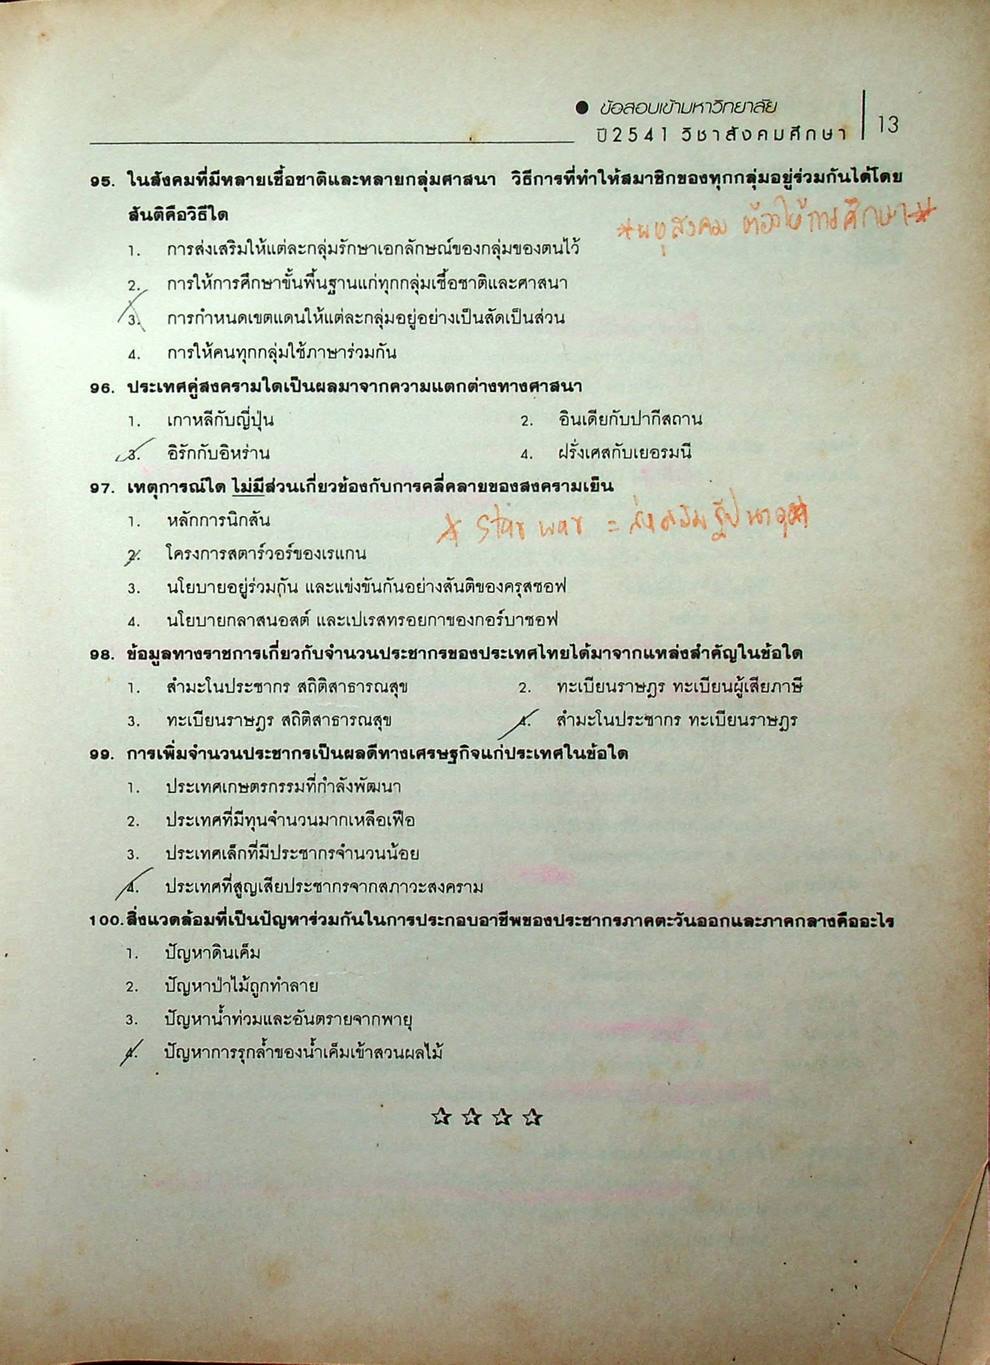 ● ข้อสอบเข้ามหาวิทยาลัย
ปี2541 วิชาสังคมศึกษา 13
95. ในสังคมที่มีหลายเชื้อชาติและหลายกลุ่มศาสนา วิธีการที่ทำให้สมาชิกของทุกกลุ่มอยู่ร่วมกันได้โดย
สันติคือวิธีใด
*พหุสังคม ต้องให้การศึกษา*
1. การส่งเสริมให้แต่ละกลุ่มรักษาเอกลักษณ์ของกลุ่มของตนไว้
2. การให้การศึกษาขั้นพื้นฐานแก่ทุกกลุ่มเชื้อชาติและศาสนา
3. การกำหนดเขตแดนให้แต่ละกลุ่มอยู่อย่างเป็นสัดเป็นส่วน
4. การให้คนทุกกลุ่มใช้ภาษาร่วมกัน
96. ประเทศคู่สงครามใดเป็นผลมาจากความแตกต่างทางศาสนา
1. เกาหลีกับญี่ปุ่น 2. อินเดียกับปากีสถาน
3. อิรักกับอิหร่าน 4. ฝรั่งเศสกับเยอรมนี
97. เหตุการณ์ใด ไม่มีส่วนเกี่ยวข้องกับการคลี่คลายของสงครามเย็น
1. หลักการนิกสัน
* Star war =
2. โครงการสตาร์วอร์ของเรแกน
3. นโยบายอยู่ร่วมกัน และแข่งขันกันอย่างสันติของครุสซอฟ
4. นโยบายกลาสนอสต์ และเปเรสทรอยกาของกอร์บาซอฟ
98. ข้อมูลทางราชการเกี่ยวกับจำนวนประชากรของประเทศไทยได้มาจากแหล่งสำคัญในข้อใด
1. สำมะโนประชากร สถิติสาธารณสุข 2. ทะเบียนราษฎร ทะเบียนผู้เสียภาษี
3. ทะเบียนราษฎร สถิติสาธารณสุข 4. สำมะโนประชากร ทะเบียนราษฎร
99. การเพิ่มจำนวนประชากรเป็นผลดีทางเศรษฐกิจแก่ประเทศในข้อใด
1. ประเทศเกษตรกรรมที่กำลังพัฒนา
2. ประเทศที่มีทุนจำนวนมากเหลือเฟือ
3. ประเทศเล็กที่มีประชากรจำนวนน้อย
4. ประเทศที่สูญเสียประชากรจากสภาวะสงคราม
100. สิ่งแวดล้อมที่เป็นปัญหาร่วมกันในการประกอบอาชีพของประชากรภาคตะวันออกและภาคกลางคืออะไร
1. ปัญหาดินเค็ม
2. ปัญหาป่าไม้ถูกทำลาย
3. ปัญหาน้ำท่วมและอันตรายจากพายุ
4. ปัญหาการรุกล้ำของน้ำเค็มเข้าสวนผลไม้